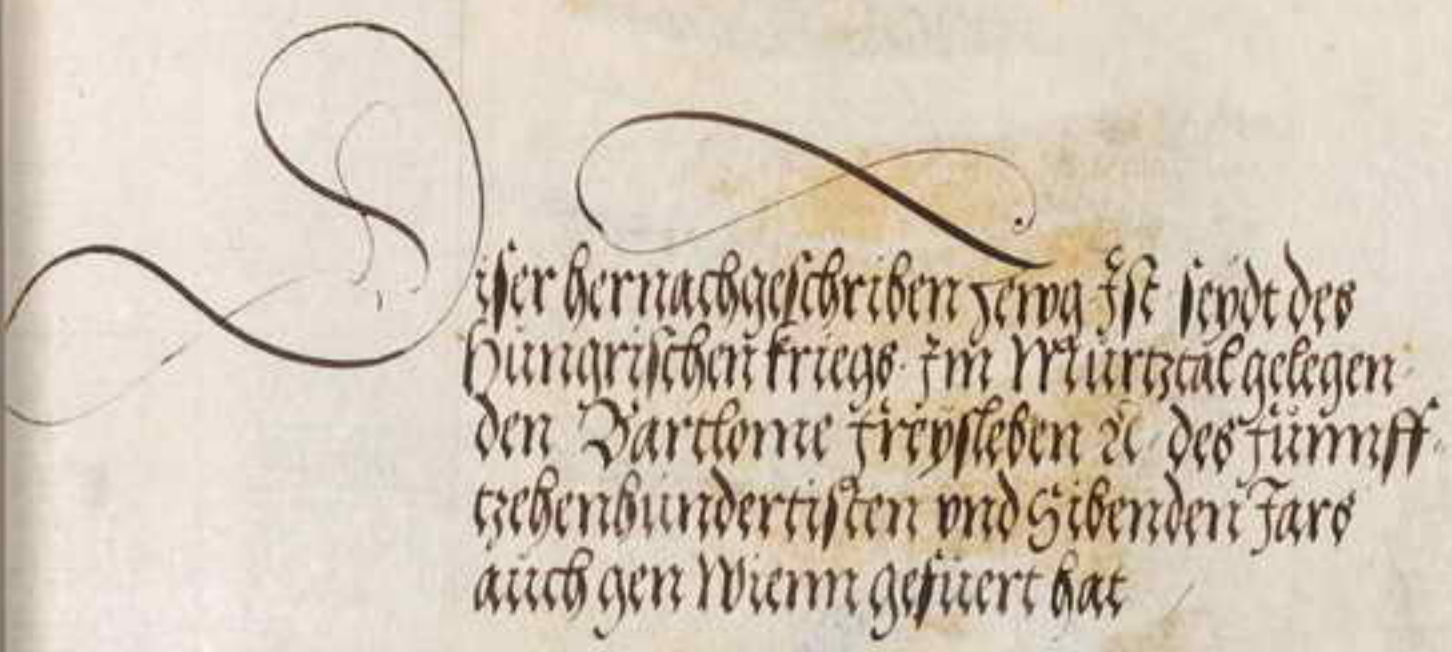 Diser hernachgeschriben zewg Ist seydt des
Hungrischen kriegs Im Mürtztal gelegen
den Bartlome freysleben ꝛc des fünnff
tzehenhundertisten vnd Sibenden Jars
auch gen Wienn gefüert hat